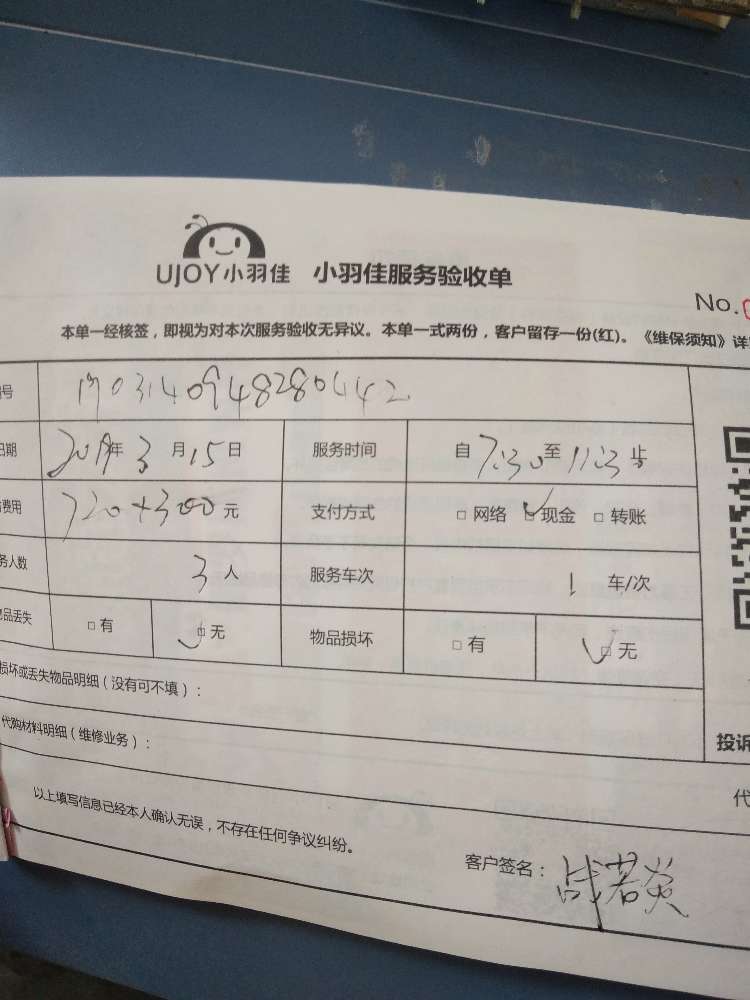 UJOY小羽佳 小羽佳服务验收单
No.
本单一经核签，即视为对本次服务验收无异议。本单一式两份，客户留存一份(红)。《维保须知》详
号 1903140948280442
日期 2019年3月15日 服务时间 自7:30至11:3止
费用 720+300元 支付方式 □网络 ☑现金 □转账
务人数 3人 服务车次 1车/次
物品丢失 □有 ☑无 物品损坏 □有 ☑无
损坏或丢失物品明细（没有可不填）：
代购材料明细（维修业务）：
投诉
代
以上填写信息已经本人确认无误，不存在任何争议纠纷。
客户签名：战若炎